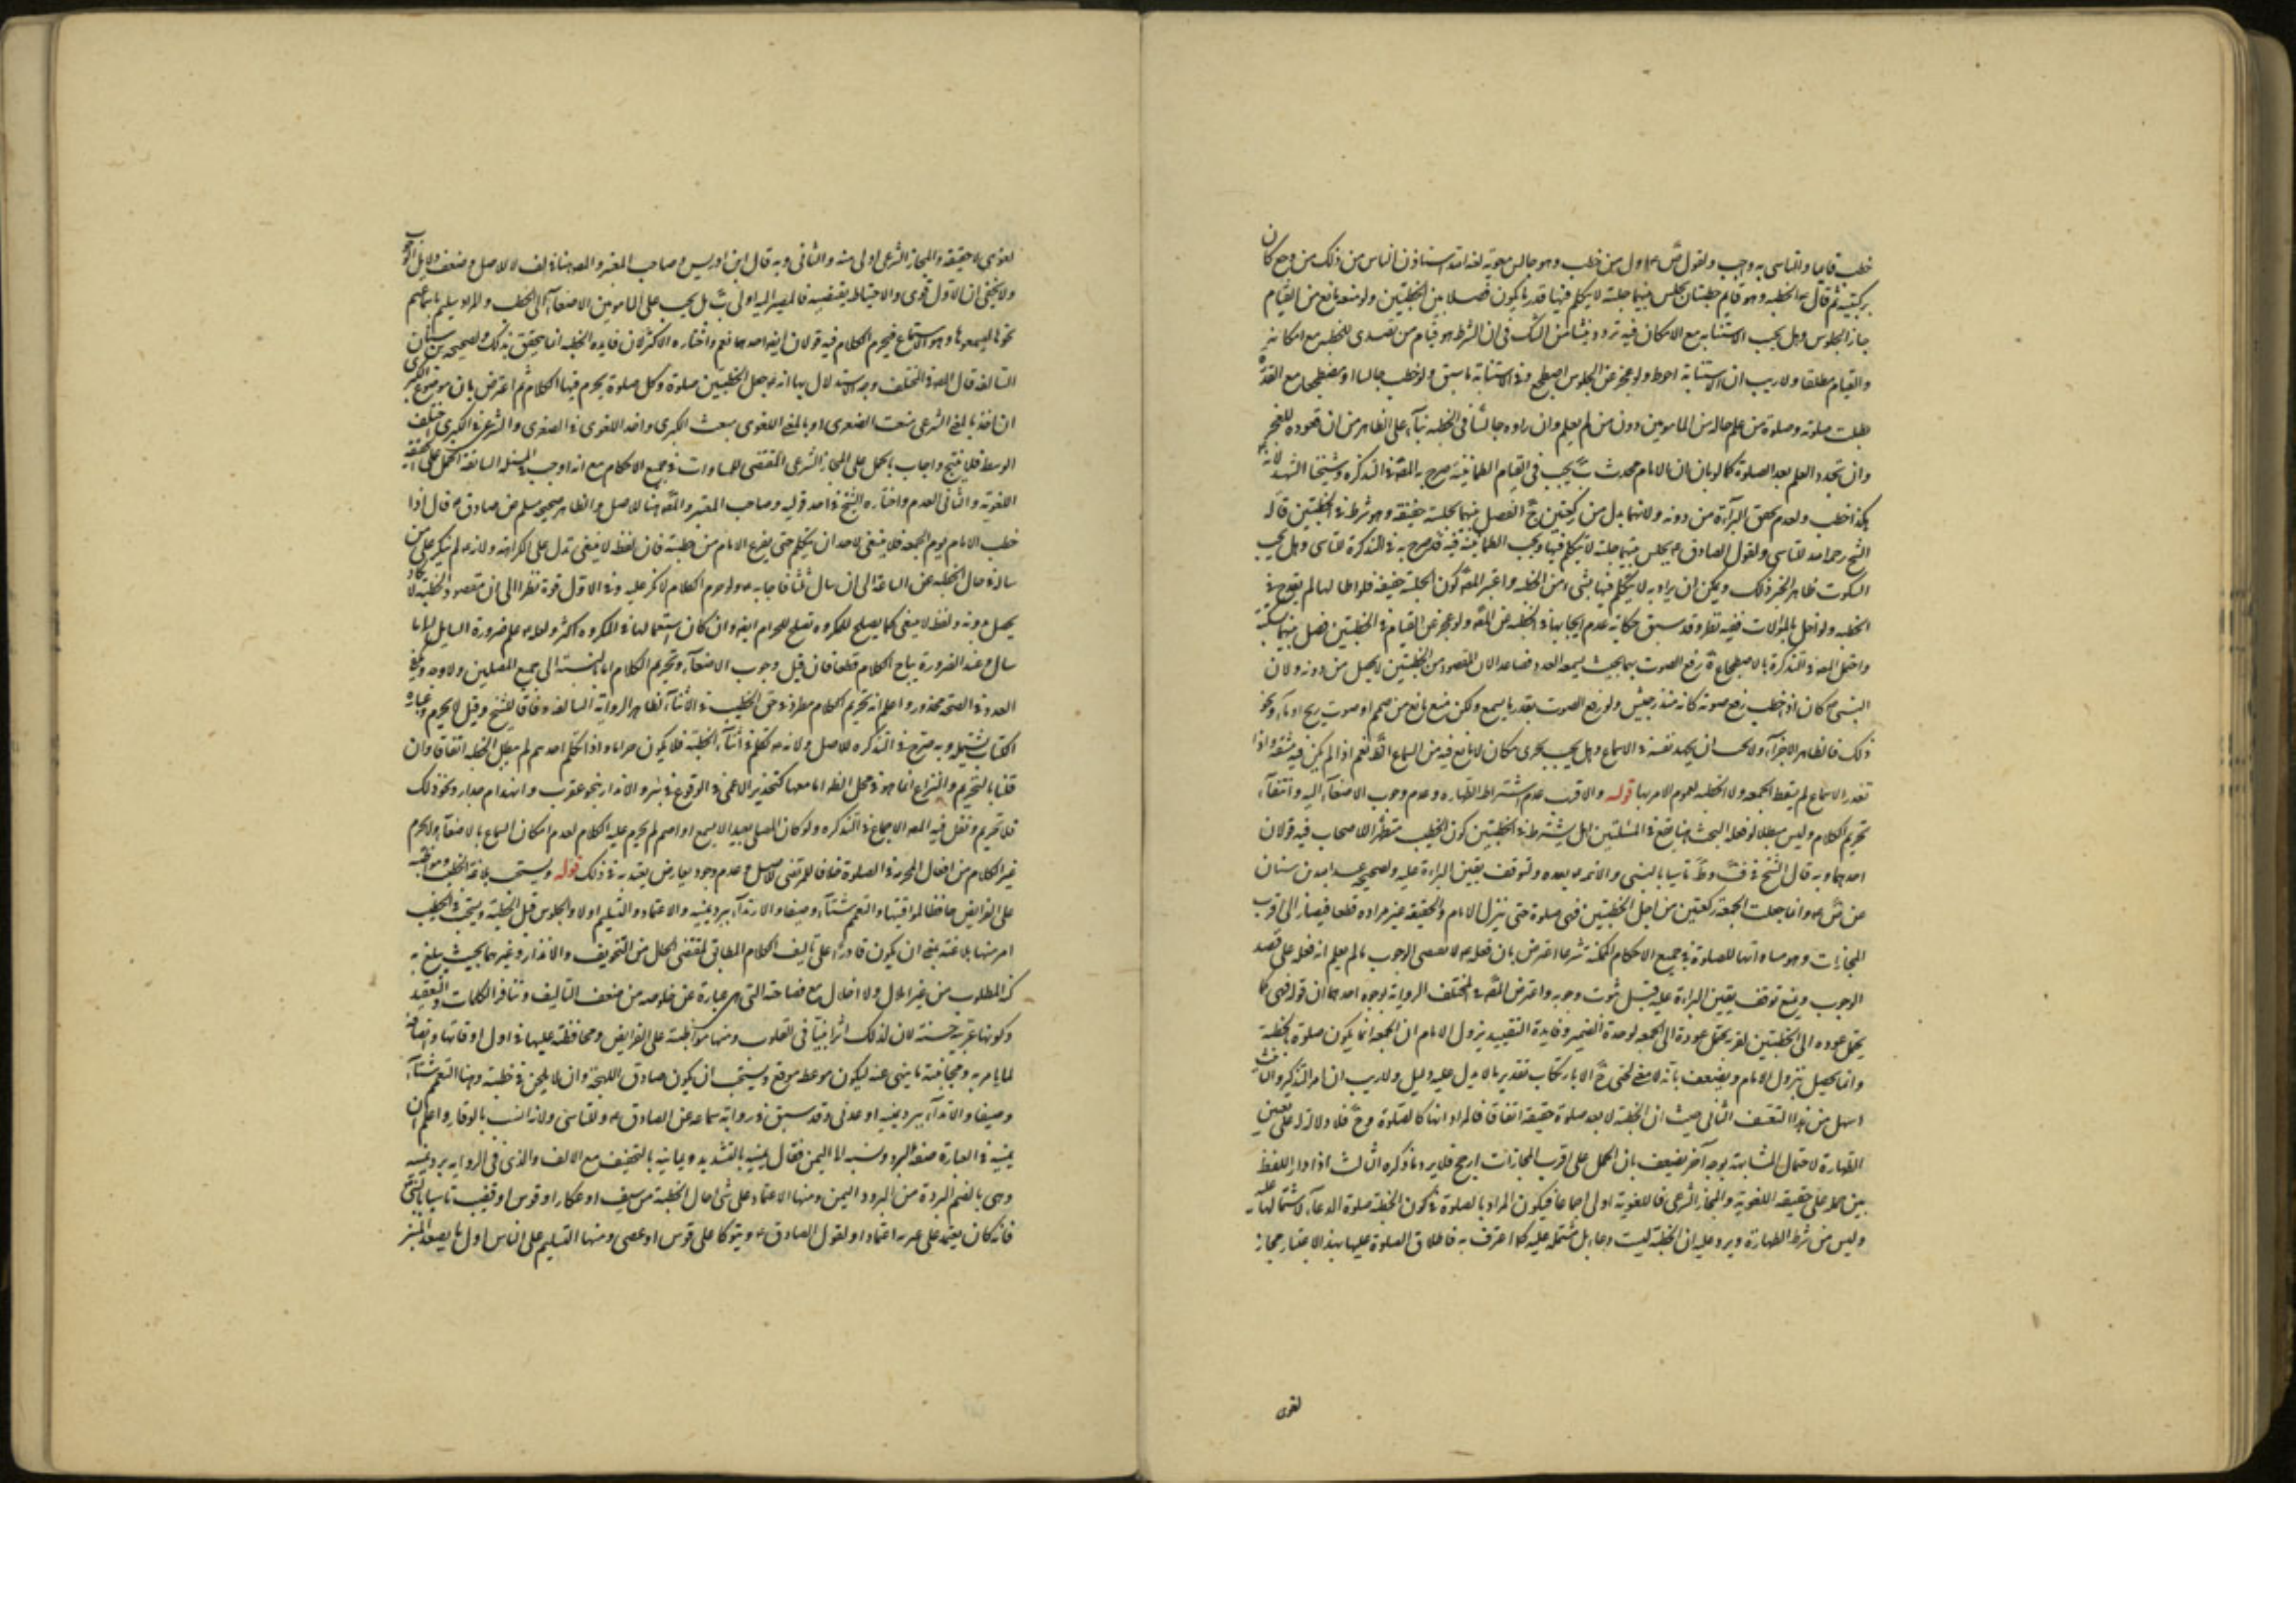 خطب قايما والتاسى به واجب ولقول ص ع اول من خطب وهو جالس معوية لعنه الله استاذن الناس من ذلك من وجع كان
بركبتيه ثم قال ع الخطبه وهو قايم خطبتان يجلس بينهما جلسة لا يتكلم فيها قدر ما يكون فصلا بين الخطبتين ولو منعه مانع من القيام
جاز الجلوس وهل يجب الاستنابه مع الامكان فيه تردد ينشا من الشك فى ان الشرط هو قيام من تصدى للخطبه مع امكانه
والقيام مطلقا ولا ريب ان الاستنابة احوط ولو عجز عن الجلوس اضطجع وفى الاستنابة ما سبق ولو خطب جالسا او مضطجعا مع القدرة
بطلت صلوته وصلوة من علم حاله من المامومين دون من لم يعلم وان راوه جالسا فى الخطبه بناء على الظاهر من ان قعوده للعجز
وان تجدد العلم بعد الصلوة كما لو بان ان الامام محدث يجب فى القيام الطمانينة صرح به المصه فى التذكره وشيخنا الشهيد لانه
هكذا خطب ولعدم تحقق البراءة من دونه ولانهما بدل من ركعتين الفصل بينهما بجلسة خفيفه وهو شرط فى الخطبتين قاله
الشيخ رحمه الله للتاسى ولقول الصادق ع يجلس بينهما جلسة لا يتكلم فيها ويجب الطمانينه فيه صرح به فى التذكرة للتاسى وهل يجب
السكوت ظاهر الخبر ذلك ويمكن ان يراد به لا يتكلم فيها بشى من الخطبه واعتبر المصه كون الجلسة خفيفة فلو اطالها لم يقدح فى
الخطبه ولو اخل بالموالات ففيه نظر وقد سبق حكاية عدم ايجابها فى الخطبه عن المصه ولو عجز عن القيام فى الخطبتين فصل بينهما بسكتة
واحتمل المصه فى التذكرة بالاضطجاع رفع الصوت بهما بحيث يسمعه العدد فصاعدا لان المقصود من الخطبتين لا يحصل من دونه ولان
النبى ص كان اذا خطب رفع صوته كانه منذر جيش ولو رفع الصوت بقدر ما يسمع ولكن منع مانع من صمم او صوت ريح او ماء ونحو
ذلك فالظاهر الاجزاء ولا يجب ان يجهد نفسه فى الاسماع وهل يجب تحرى مكان لا مانع فيه من السماع الظ نعم اذا لم يكن فيه مشقة واذا
تعذر الاسماع لم يسقط الجمعه ولا الخطبه لعموم الامر بها قوله والاقرب عدم اشتراط الطهاره وعدم وجوب الاصغاء اليه وانتفاء
تحريم الكلام وليس مبطلا لو فعله البحث هنا يقع فى المسئلتين هل يشترط فى الخطبتين كون الخطيب متطهرا للاصحاب فيه قولان
احدهما وبه قال الشيخ فى ف وط تاسيا بالنبى والائمه بعده ولتوقف يقين البراءة عليه ولصحيحه عبد الله بن سنان
عن ص ع وانما جعلت الجمعة ركعتين من اجل الخطبتين فهى صلوة حتى ينزل الامام والحقيقه غير مراده قطعا فيصار الى اقرب
المجازات وهو مساواتها للصلوة فى جميع الاحكام الممكنة شرعا اعترض بان فعله ع لا يقتضى الوجوب ما لم يعلم انه فعله على قصد
الوجوب وبمنع توقف يقين البراءة عليه قبل ثبوت وجوبه واعترض المصه فى المختلف الرواية بوجوه احدها ان قوله فهى كما
يحتمل عوده الى الخطبتين لقربه يحتمل عودة الى الجمعه لوحدة الضمير وفايدة التقييد بنزول الامام ان الجمعه انما يكون صلوة بالخطبة
وانما يحصل بنزول الامام ويضعف بانه لا معنى لحتى الا بارتكاب تقدير ما لا يدل عليه دليل ولا ريب ان امر التذكير والتانيث
اسهل من هذا التعسف الثانى حيث ان الخطبة لا يعد صلوة حقيقة اتفاقا فالمراد انها كالصلوة فلا دلالة له على تعيين
الطهارة لاحتمال المشابهة بوجه آخر يضعف بان الحمل على اقرب المجازات ارجح فلا يرد ما ذكره الثالث اذا دار اللفظ
بين حمله على حقيقته اللغوية والمجاز الشرعى فاللغوية اولى اجماعا فيكون المراد بالصلوة كون الخطبة صلوة الدعاء لاشتمالها عليه
وليس من شرطه الطهارة ويرد عليه ان الخطبة ليست دعاء بل مشتملة عليه كما اعترف به فاطلاق الصلوة عليها بهذا الاعتبار مجاز
لغوى
لغوى لا حقيقه والمجاز الشرعى اولى منه والثانى وبه قال ابن ادريس وصاحب المعتبر والمصه هنا لف لا للاصل وضعف دلايل الوجوب
ولا يخفى ان الاول قوى والاحتياط يقتضيه فالمصير اليه اولى هل يجب على المامومين الاصغاء الى الخطب والمراد به
نحوها ليسمعوها وهو الاستماع فيحرم الكلام فيه قولان احدهما نعم واختاره الاكثر لان فايده الخطبه انما يتحقق بذلك ولصحيحه ابن سنان
السالفه قال المصه فى المختلف وجه الاستدلال بها انه ع جعل الخطبتين صلوة وكل صلوة يحرم فيها الكلام ثم اعترض بان موضوع الكبرى
ان اخذ بالمعنى الشرعى منعت الصغرى او بالمعنى اللغوى منعت الكبرى واخذ اللغوى فى الصغرى والشرعى فى الكبرى اختلف
الوسط فلا ينتج واجاب بالحمل على المجاز الشرعى المقتضى للمساوات فى جميع الاحكام مع انه اوجب فى المسئله السابقة الحمل على الحقيقه
اللغويه والثانى العدم واختاره الشيخ فى احد قوليه وصاحب المعتبر والمصه هنا للاصل والظاهر صحيحه مسلم عن صادق ع قال اذا
خطب الامام يوم الجمعه فلا ينبغى لاحد ان يتكلم حتى يفرغ الامام من خطبته فان لفظ لا ينبغى تدل على الكراهة ولانه ع لم ينكر على من
ساله حال الخطبه عن الساعة الى ان سال ثلثا فاجابه ع ولو حرم الكلام لانكر عليه وفى الاول قوة نظرا الى ان مقصود الخطبة لا يكاد
يحصل بدونه ولفظ لا ينبغى كما يصلح للمكروه تصلح للحرام ايضا وان كان استعمالها فى المكروه اكثر ولعله ع علم ضرورة السايل الى ما
سال وعند الضرورة يباح الكلام قطعا فان قيل وجوب الاصغاء وتحريم الكلام اما بالنسبة الى جميع المصلين ولا وجه
العدد فى الصحة محذور واعلم انه تحريم الكلام مطرد فى حق الخطيب فى الاثناء لظاهر الرواية السالفه وفاقا للشيخ وقيل لا يحرم وعبارة
الكتاب يشتمله وبه صرح فى التذكره للاصل ولانه ص تكلم فى اثناء الخطبة فلا يكون حراما واذا تكلم احدهم لم يبطل الخطبه اتفاقا وان
قلنا بالتحريم والنزاع انما هو فى محل الظ اما معها كتحذير الاعمى فى الوقوع فى بئر والانذار بنحو عقرب وانهدام جدار ونحو ذلك
فلا تحريم ونقل فيه المصه الاجماع فى التذكره ولو كان المصلى بعيدا لا يسمع او اصم لم يحرم عليه الكلام لعدم امكان السماع بالاصغاء ولا يحرم
غير الكلام من افعال المحرمه فى الصلوة خلافا للمرتضى للاصل وعدم وجود معارض يعتد به فى ذلك قوله ويستحب بلاغة الخطيب ومواظبته
على الفرايض حافظا لمواقيتها والتعمم شتاء وصيفا والارتداء ببرد يمنيه والاعتماد والتسليم اولا والجلوس قبل الخطبة ويستحب فى الخطيب
امر منها بلاغته بمعنى ان يكون قادرا على تاليف الكلام المطابق لمقتضى الحال من التخويف والانذار وغيرهما بحيث يبلغ به
كنه المطلوب من غير املال ولا اخلال مع فصاحته التى هى عبارة عن خلوصه من ضعف التاليف وتنافر الكلمات والتعقيد
وكونها عربيه حسنة لان لذلك اثرا بينا فى القلوب ومنها مواظبته على الفرايض ومحافظته عليها فى اول اوقاتها واتصافه
لما يامر به ومجانبته ما ينهى عنه ليكون موعظه موقع ويستحب ان يكون صادق اللهجة وان لا يلحن فى خطبته ومنها التعمم شتاء
وصيفا والارتداء ببرد يمنيه او عدنى وقد سبق فى رواية سماعه عن الصادق ع وللتاسى ولانه انسب بالوقار واعلم ان
يمنيه فى العبارة صفة البرد ونسبه الى اليمن فقال يمنيه بالتشديد ويمانيه بالتخفيف مع الالف والذى فى الروايه برد يمنيه
وهى بالضم البردة من البرود اليمن ومنها الاعتماد على شى حال الخطبة من سيف او عكاز او قوس او قضيب تاسيا بالنبى ص
فانه كان يعتمد على عنزه اعتمادا ولقول الصادق ع ويتوكا على قوس او عصى ومنها التسليم على الناس اول ما يصعد المنبر